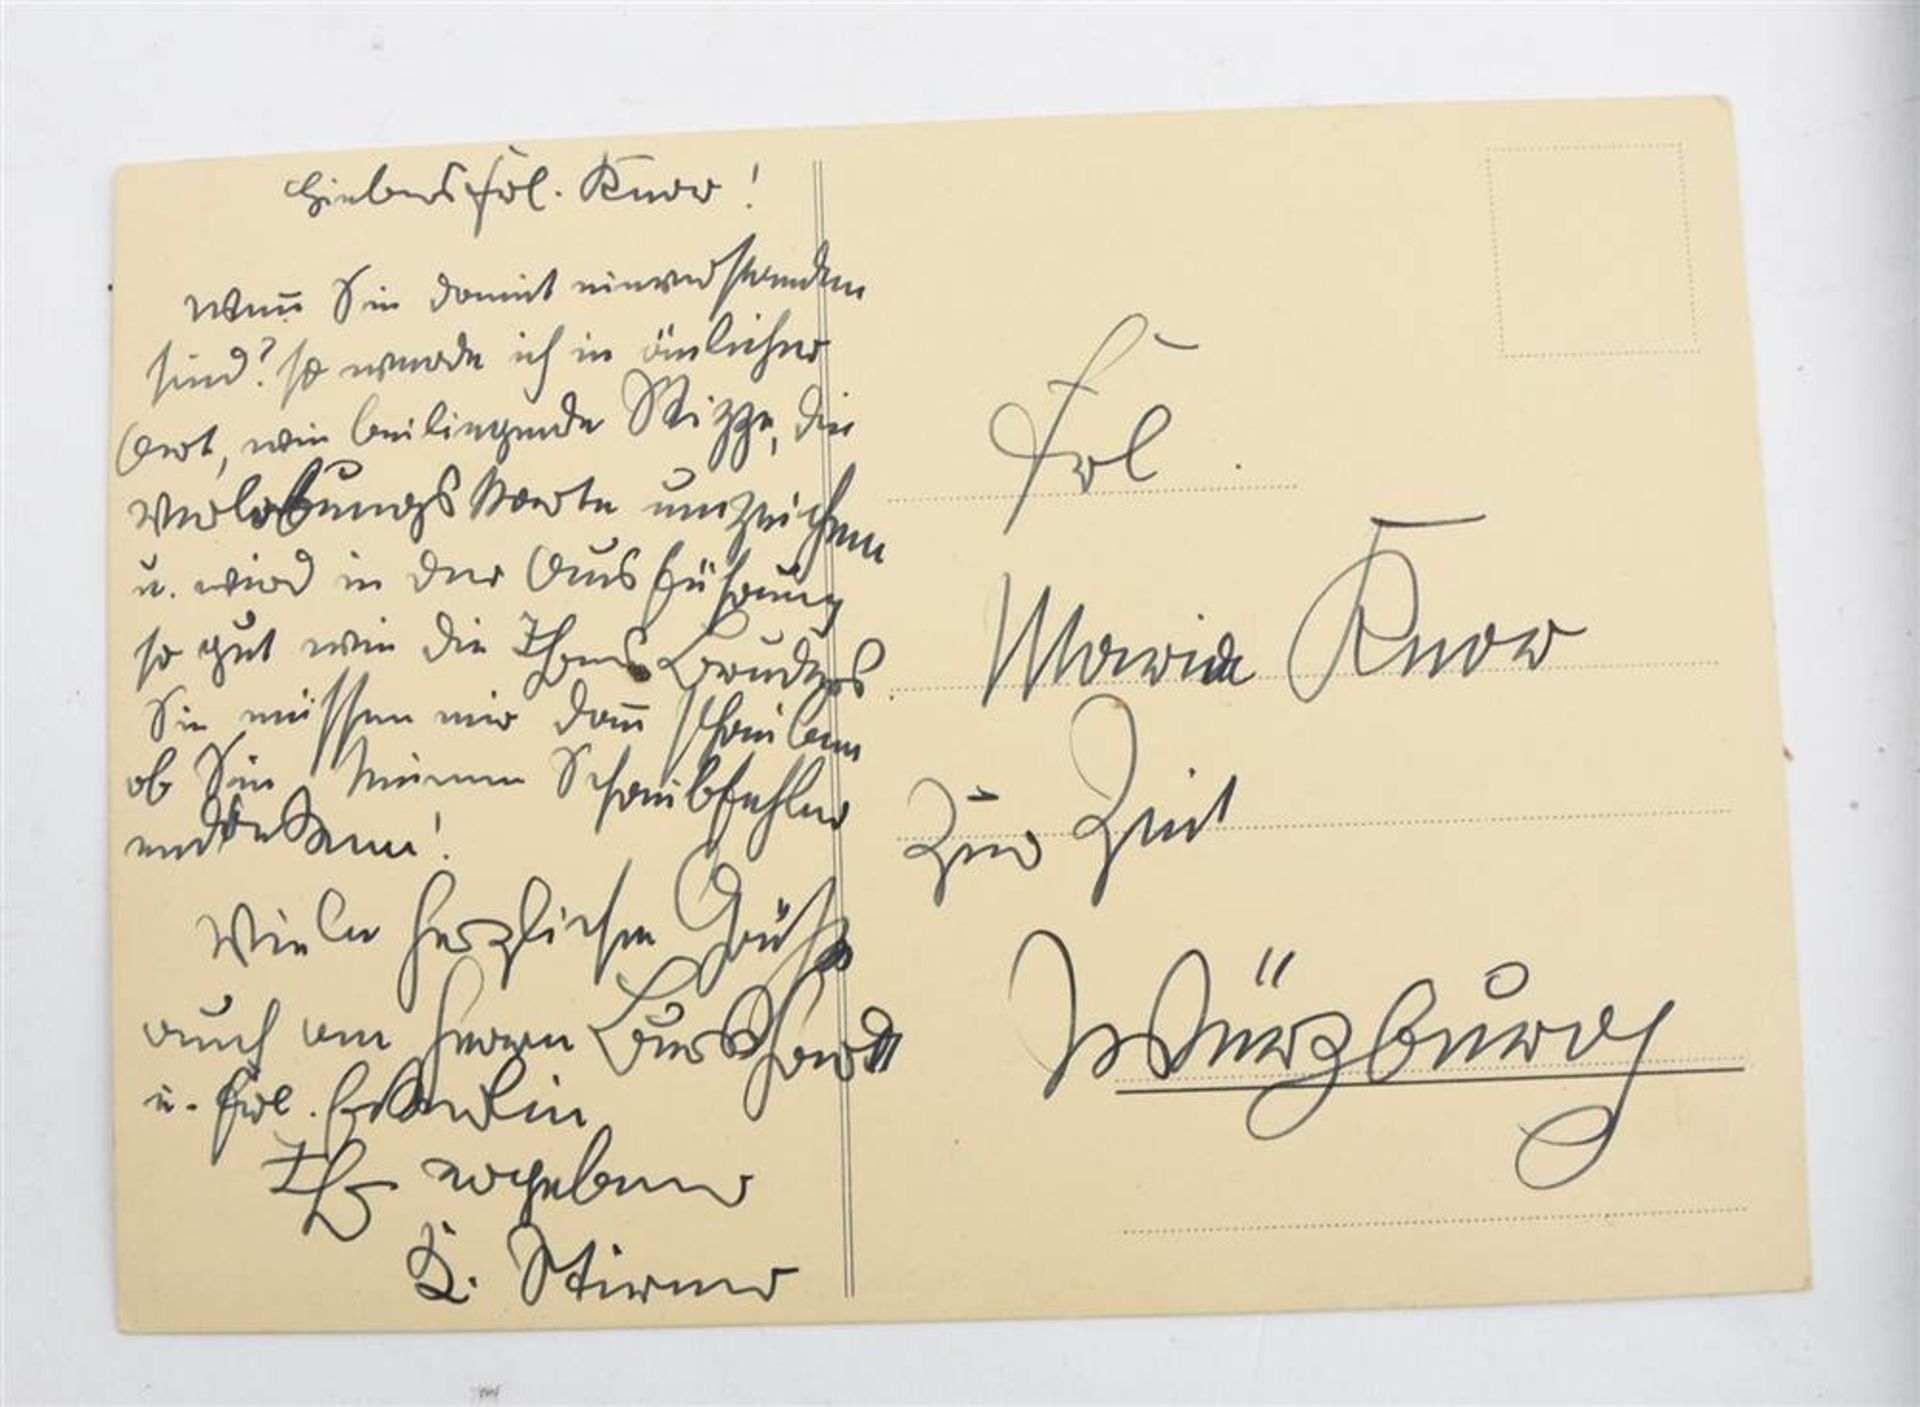 Liebes Frl. Knorr!
Wenn Sie damit einverstanden
sind? so werde ich in änlicher
Art, wie beiliegende Skizze, die
Verlobungskarte umzeichnen
u. wird in der Ausführung
so gut wie die Ihres Bruders
Sie müssen mir dann schreiben
ob Sie meinen Schreibfehler
entdecken!
Viele herzlichen Grüße
auch an Herrn Burkhard
u. Frl.
Ihr ergebener
K. Stirner
Frl.
Maria Knorr
Zur Zeit
Würzburg